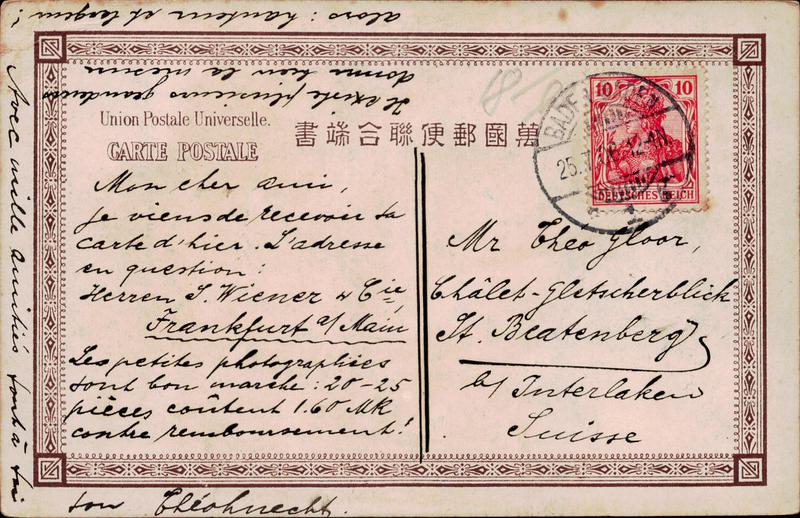 Union Postale Universelle.
萬國郵便聯合端書
CARTE POSTALE
10 10
DEUTSCHES REICH
BADEN
25.
Mon cher ami,
je viens de recevoir ta
carte d'hier. L'adresse
en question:
Herren S. Wiener & Cie,
Frankfurt a/Main
Les petites photographies
sont bon marché: 20-25
pièces coûtent 1.60 Mk
contre remboursement!
Il existe plusieurs grandeurs
donne la mesure
alors: hauteur et largeur!
Avec mille amitiés tout à toi
ton Théoknecht.
Mr Theo Gloor,
Châlet-Gletscherblick
St. Beatenberg
b/Interlaken
Suisse